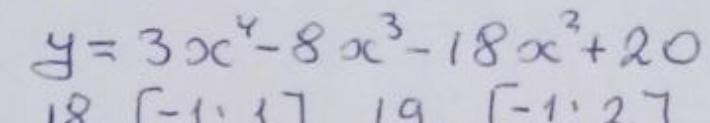 y = 3x⁴ - 8x³ - 18x² + 20
18 [-1; 1] 19 [-1; 2]